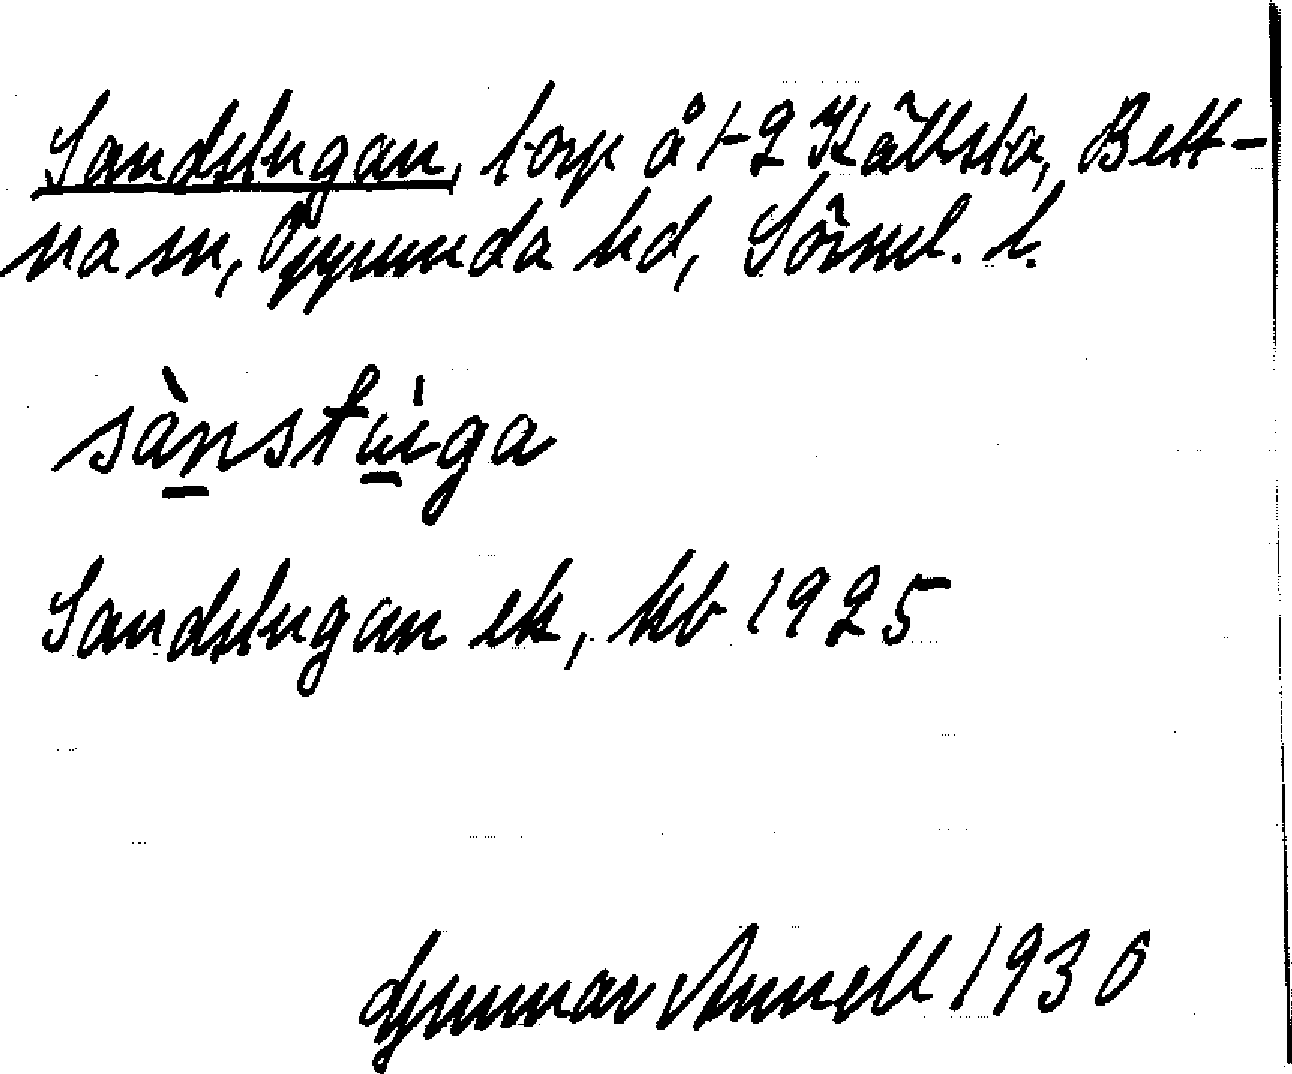 Sandstugan, torp å 1-2 Källsta, Bett-
na sn, Oppunda hd, Sörml. l.
sànstu̇ga
Sandstugan ek, kb 1925
Gunnar Annell 1930